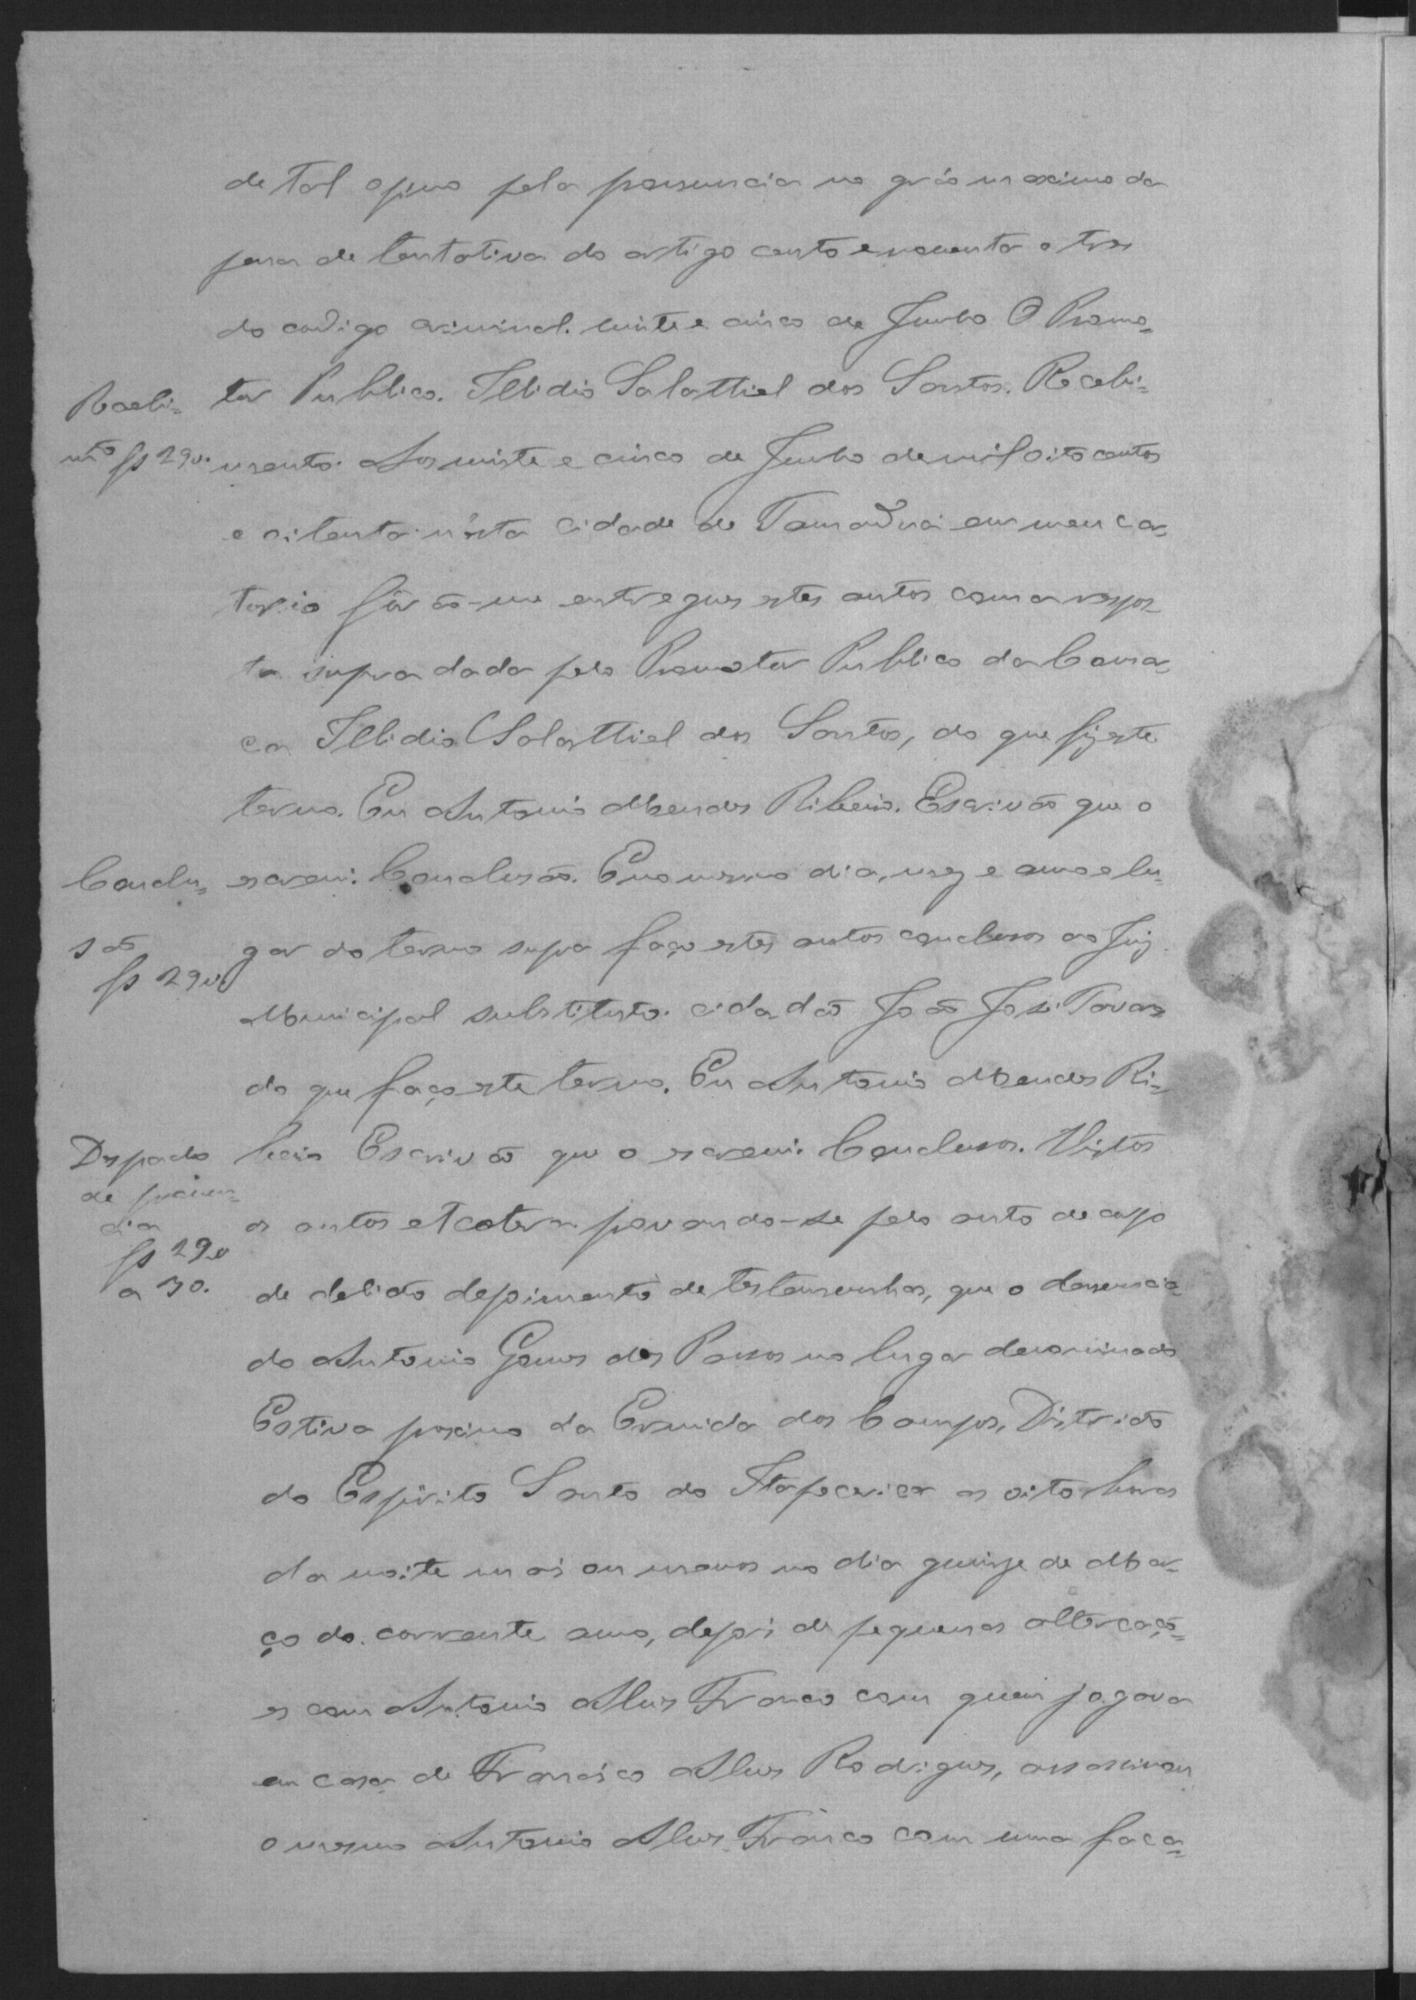 de tal opino pela pronuncia no gráo maximo da
pena de tentativa do artigo cento e noventa e tres
do codigo criminal. vinte e cinco de Junho O Promo=
tor Publico. Illidio Salatthiel dos Santos. Recebi=
Recebi=
mto fs 29v.
mento. Aos vinte e cinco de Junho de mil oito centos
e oitenta nésta cidade de Tamanduá em meu car
torio forão-me entregues estes autos com a respos
ta supra dada pelo Promotor Publico da Comar
ca Illidio Salatthiel dos Santos, do que fiz este
termo. Eu Antonio Mendes Ribeiro. Escrivão que o
Conclu=
são
fs 29v
escrevi. Conclusão. E no mesmo dia, mez e anno e lu=
gar do termo supra faço estes autos conclusos ao Juiz
Municipal substituto. cidadão João José Tavares
do que faço este termo. Eu Antonio Mendes Ri=
Despacho
de
fs 29v
a 30.
beiro Escrivão que o escrevi. Conclusos. Vistos
os autos etcetera provando-se pelo auto de corpo
de delicto depoimento de testemunhas, que o denuncia
do Antonio Gomes dos Passos no lugar denominado
Estiva proximo da Ermida dos Campos, Districto
do Espirito Santo do Itapecerica as oito horas
da noite mais ou menos no dia quinze de Mar=
ço do corrente anno, depois de pequenas altercaçõ=
es com Antonio Alves Franco com quem jogava
em casa de Francisco Alves Rodrigues, assassinou
o mesmo Antonio Alves Franco com uma faca=